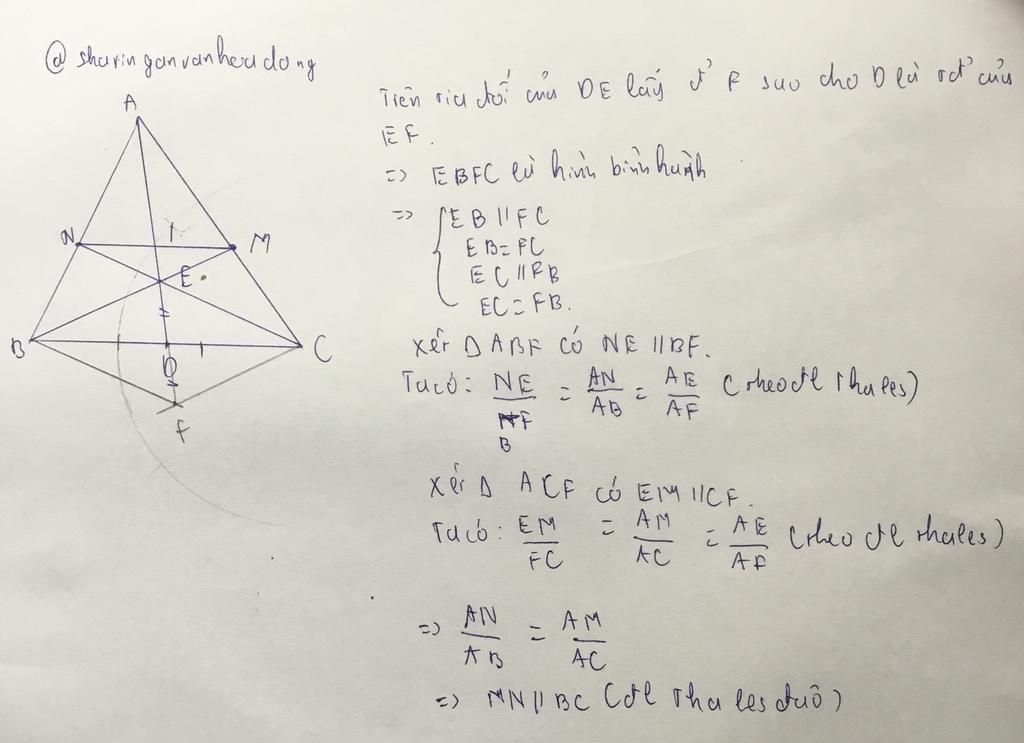 @sharinganvanhoadong
A
N
M
E
B
C
D
F
Trên tia đối của DE lấy đ' F sao cho D là tđ' của
EF.
=> EBFC là hình bình hành
=> { EB // FC
EB = FC
EC // FB
EC = FB.
Xét Δ ABF có NE // BF.
Ta có: NE/BF = AN/AB = AE/AF (theo đl thales)
Xét Δ ACF có EM // CF.
Ta có: EM/FC = AM/AC = AE/AF (theo đl thales)
=> AN/AB = AM/AC
=> MN // BC (đl Thales đảo)